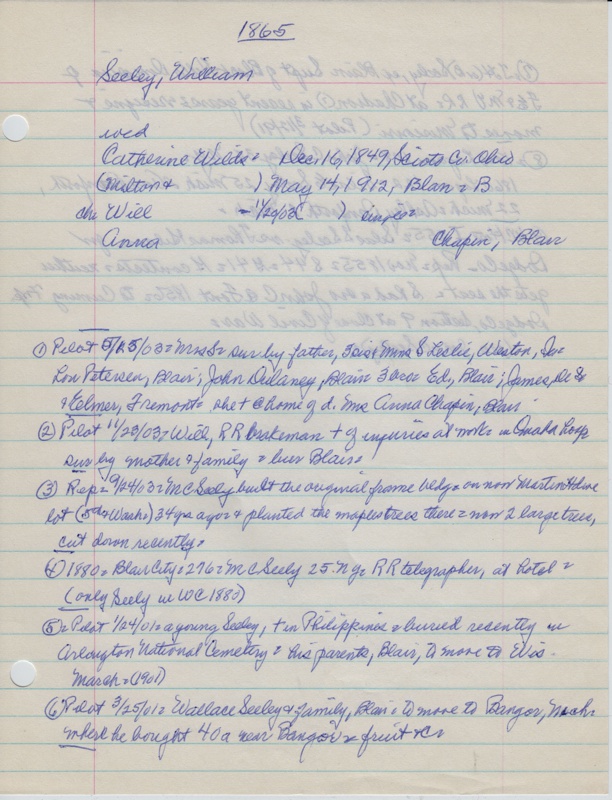 1865
Seeley, William
wed
Catherine Wilds = Dec. 16, 1849, Sciots Co. Ohio
(Milton & ) May 14, 1912, Blan = B
chi Will - 11/20/03 C )
Anna Chapin, Blair
① Pilot 5/25/03 = Mrs S = sur by father, 3 sis: Mrs S Leslie, Weston, Ia =
Lon Petersen, Blair; John Dulaney, Blair = 3 bros = Ed, Blair; James,
& Elmer, Fremont = she + @ home of d. Mrs Anna Chapin, Blair
② Pilot 11/20/03 = Will, RR brakeman + of injuries at work = in Omaha Hosp
sur by mother & family = bur Blair =
③ Rep = 9/24/03 = M C Seely built the original frame bldg = on now Martin
lot (5th & Wash) 34 yrs ago & planted the maple trees there = now 2 large trees,
cut down recently =
④ 1880 = Blair City = 276 = M C Seely 25 = N y = RR telegrapher, at hotel =
(only Seely in WC 1880)
⑤ = Pilot 1/24/01 = a young Seeley, + in Philippines = buried recently in
Arlington National Cemetery = his parents, Blair, to move to Wis -
March = (1901)
⑥ Pilot 3/25/01 = Wallace Seeley & family, Blair = to move to Bangor, Mich =
where he bought 40 a near Bangor = fruit &c